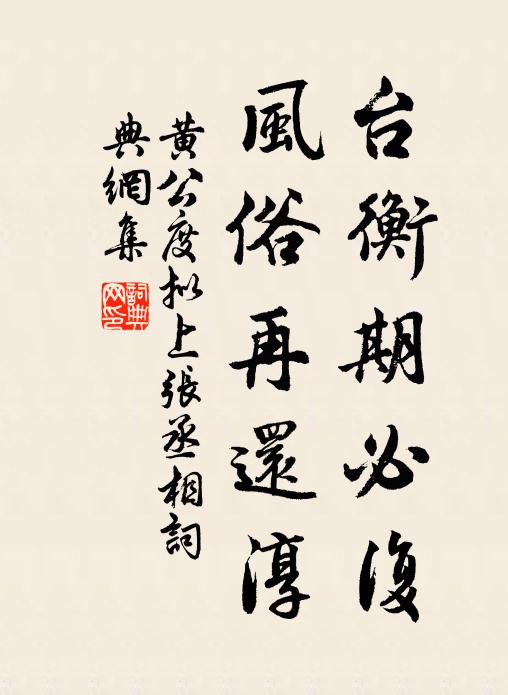 台衡期必復
風俗再還淳
黄公度拟上張丞相詞
典網集
詞典网印